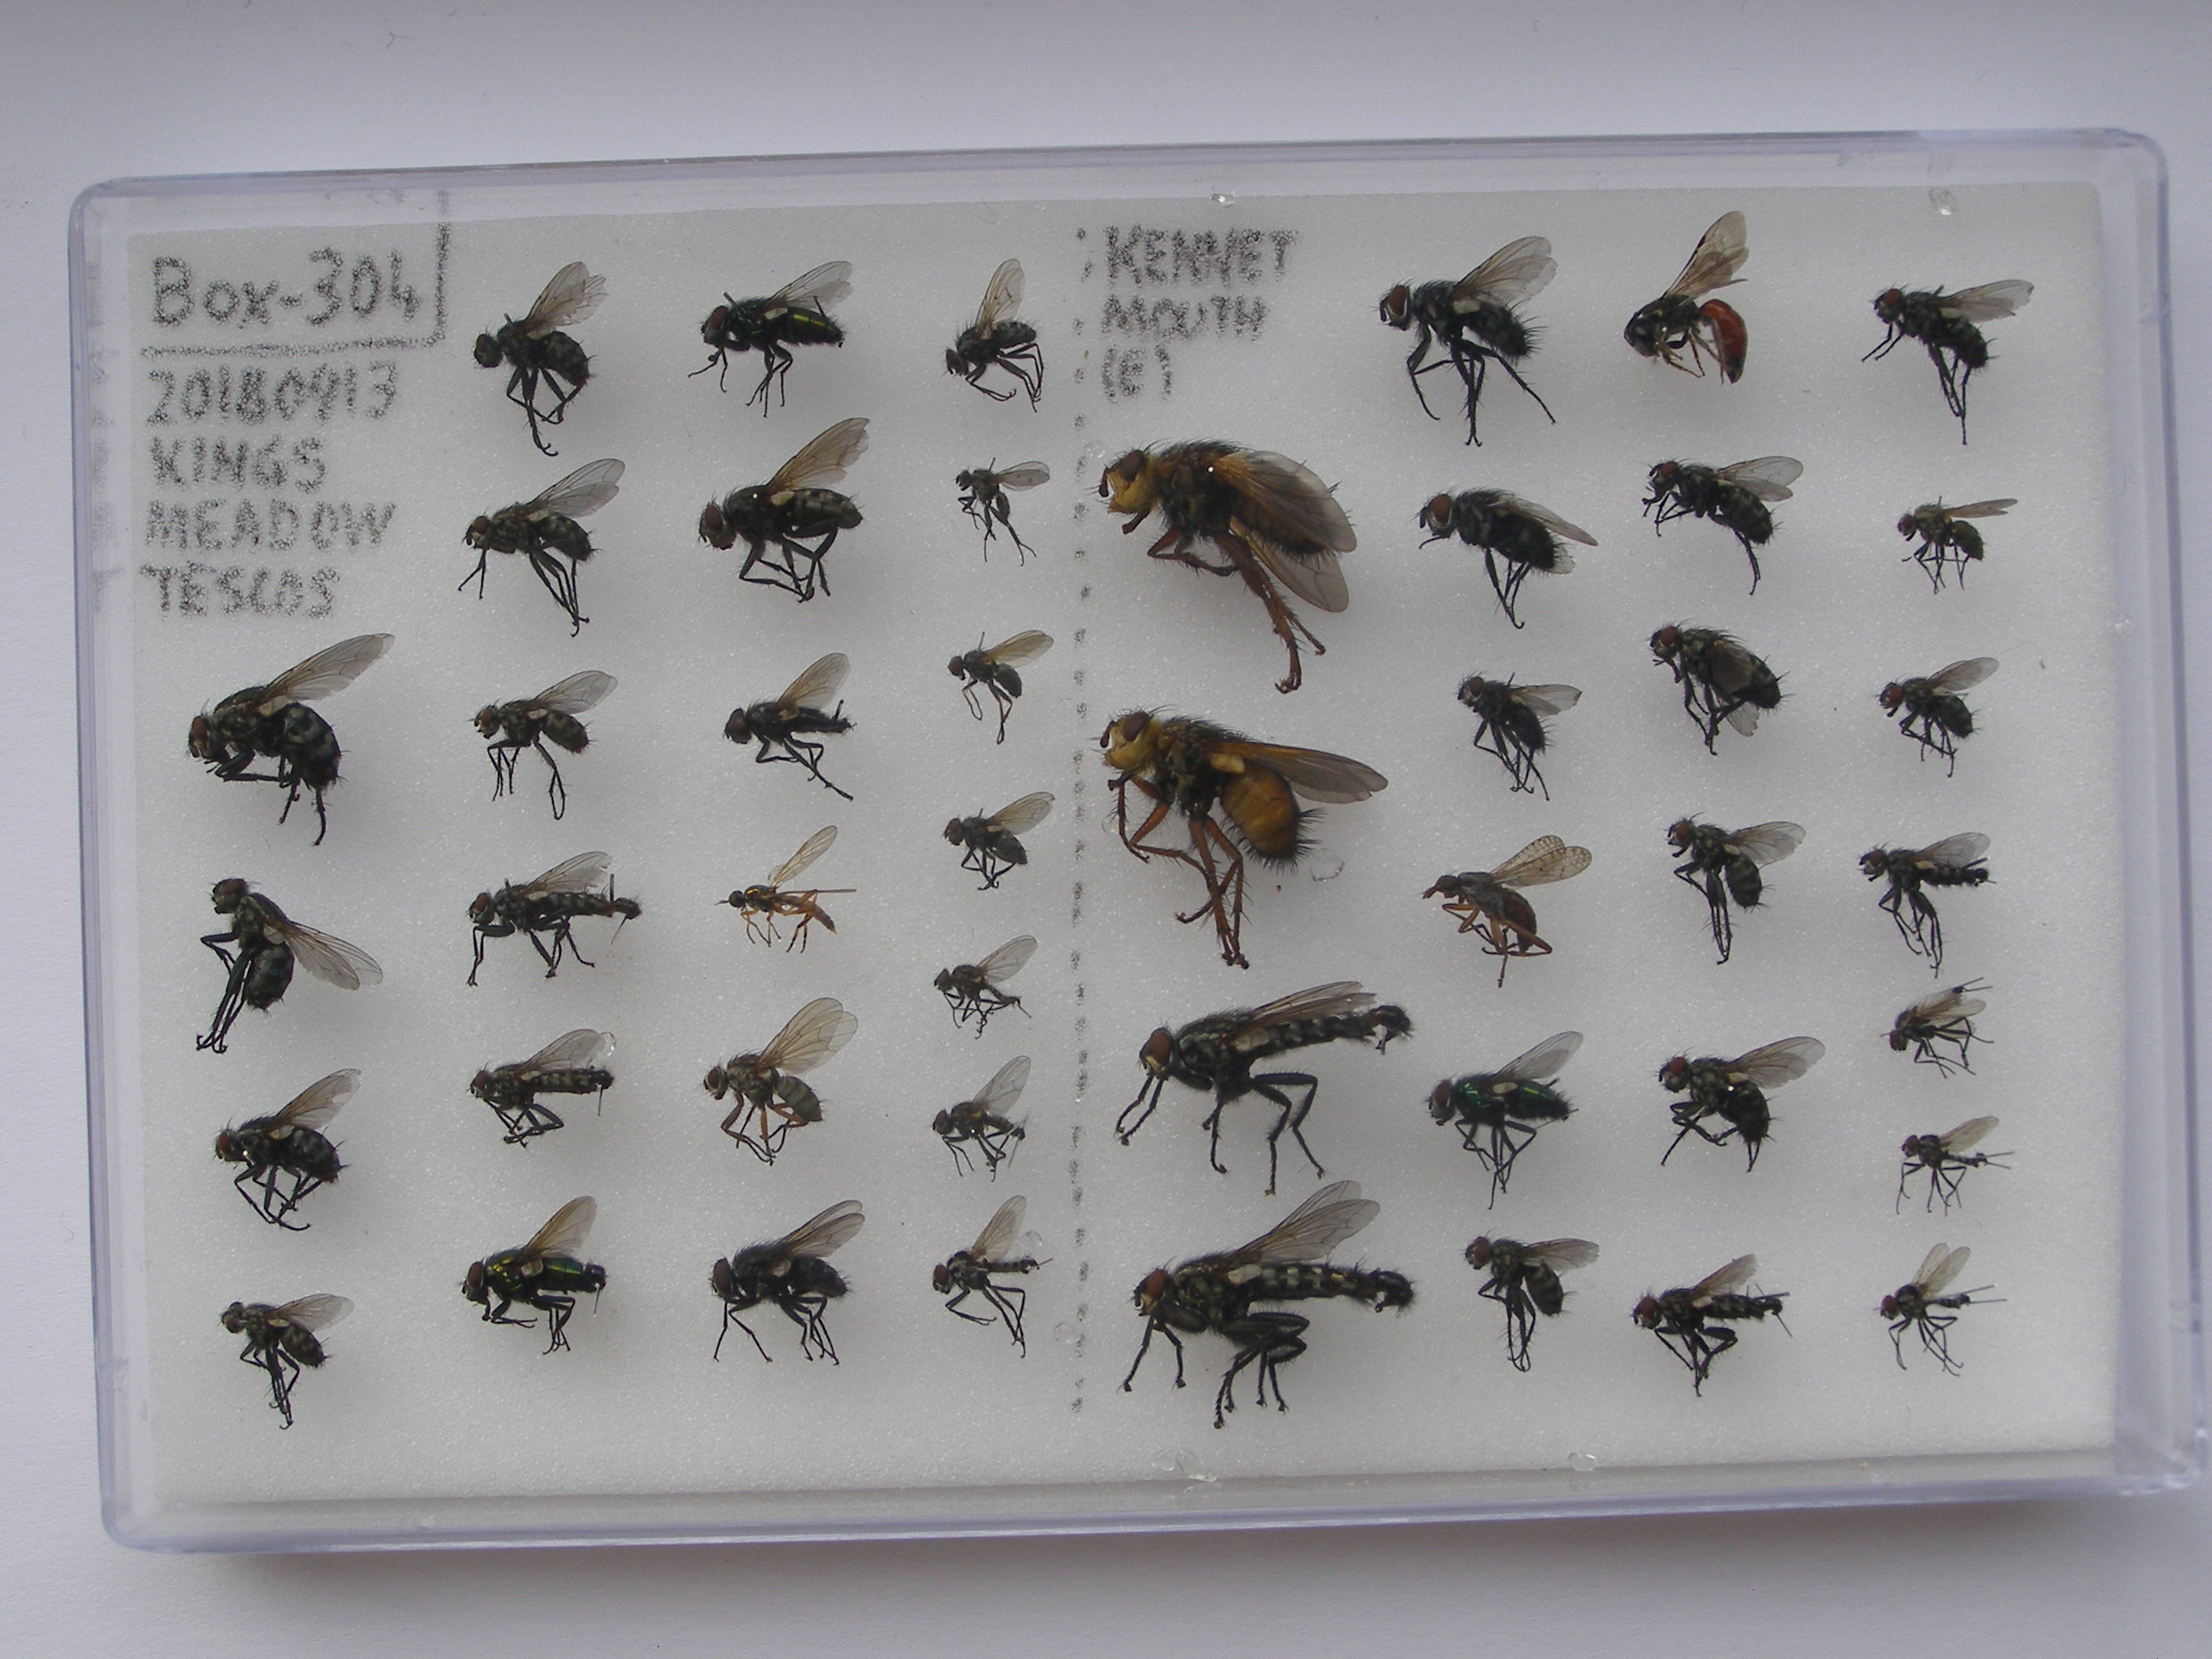 Box-304
20180913
KINGS
MEADOW
TESCOS
KENNET
MOUTH
(E)